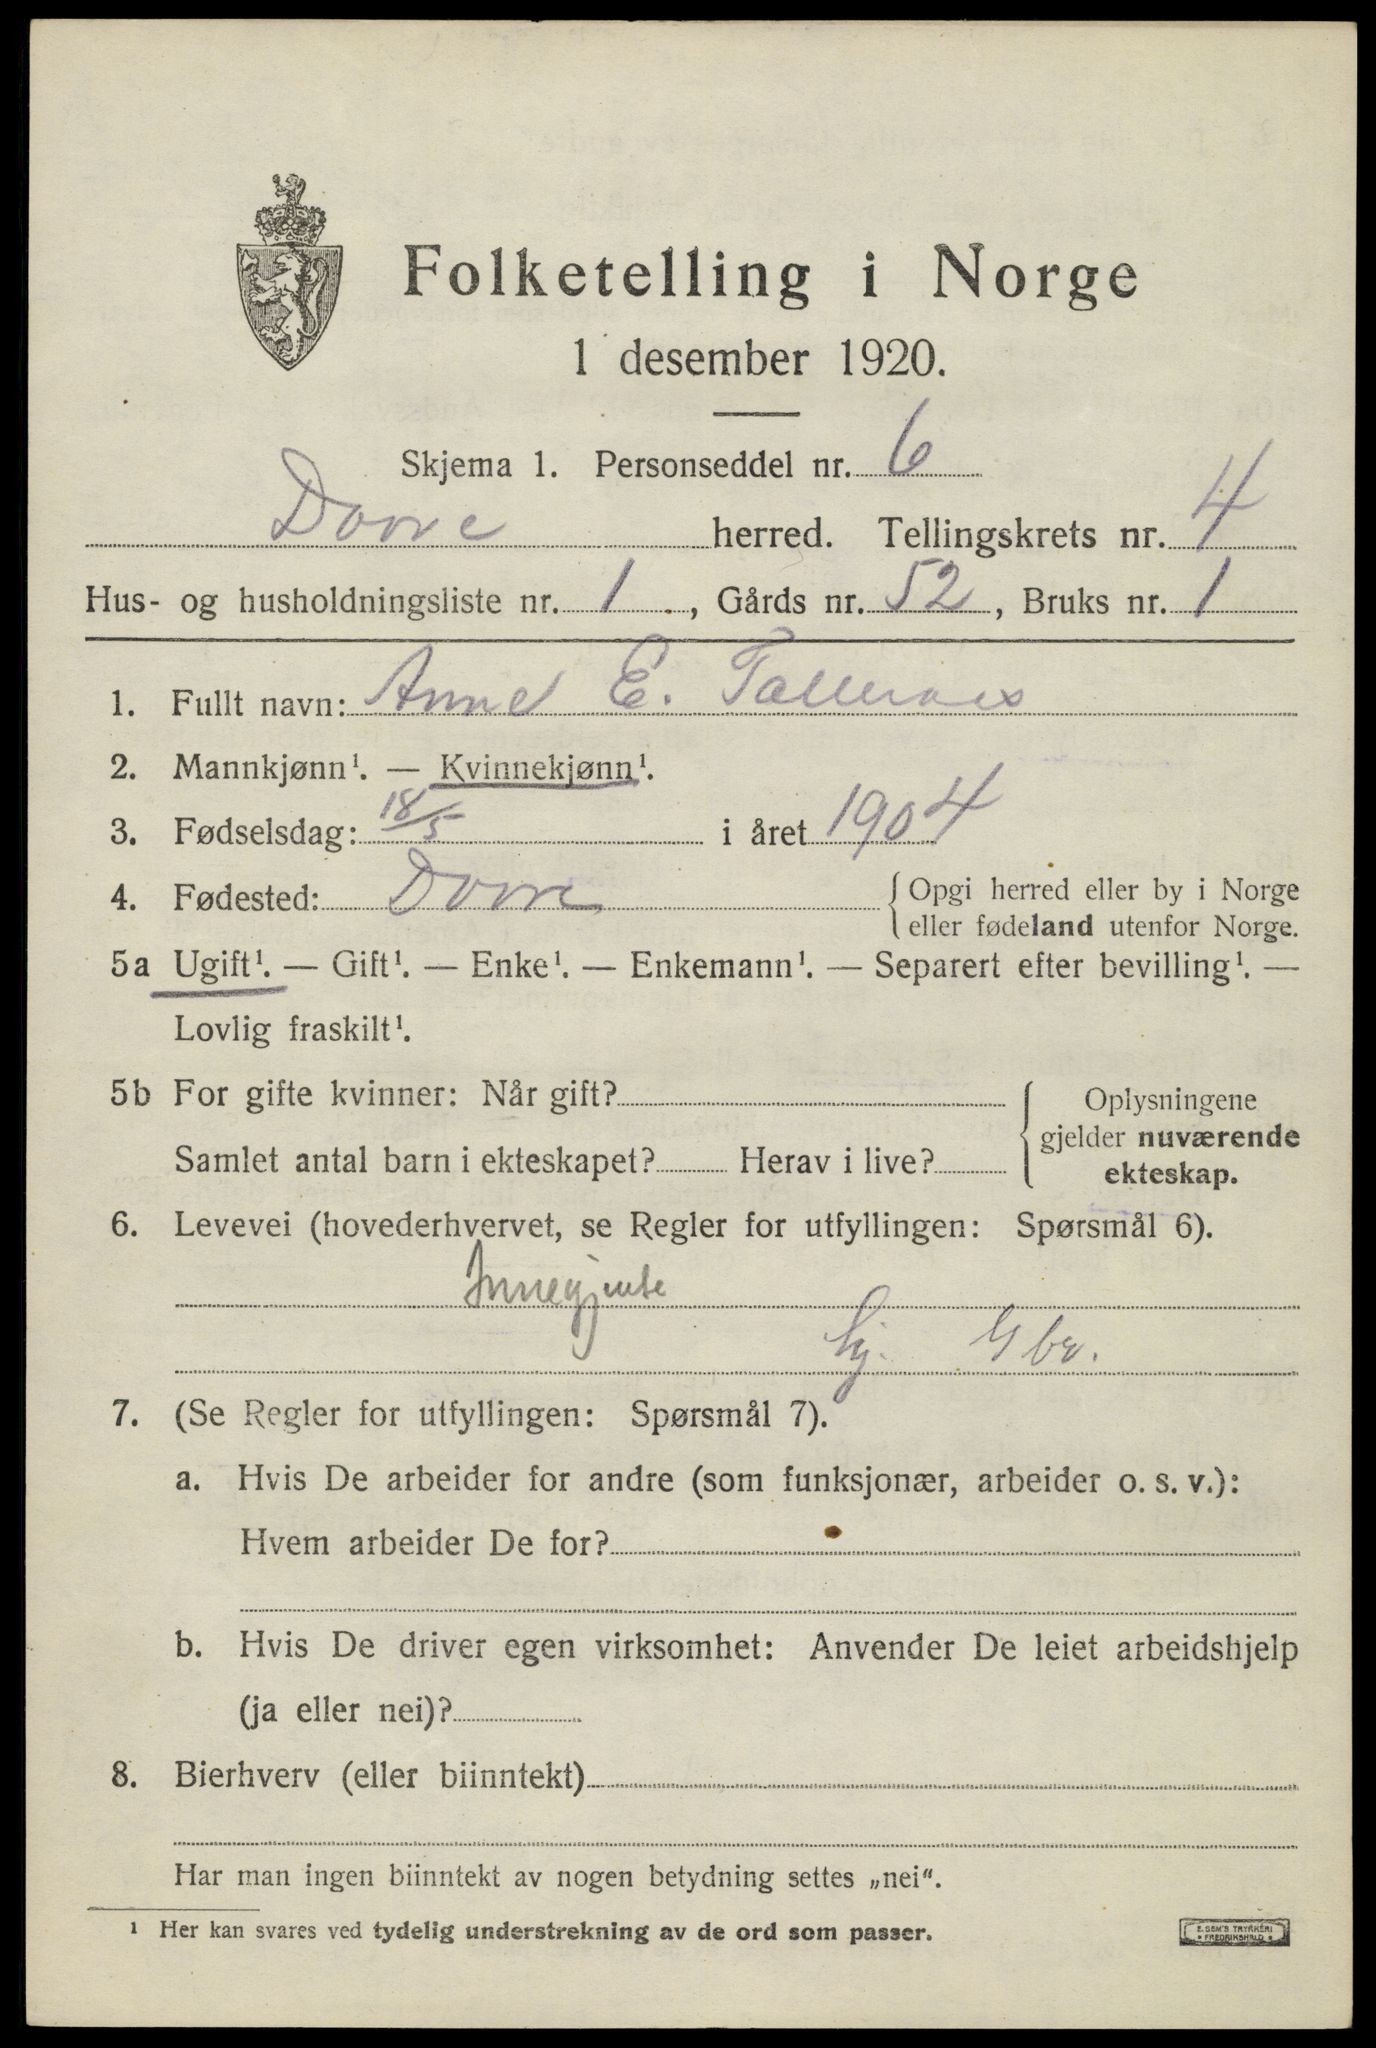 Folketelling i Norge
1 desember 1920.
Skjema 1. Personseddel nr. 6
Dovre herred. Tellingskrets nr. 4
Hus- og husholdningsliste nr. 1, Gårds nr. 52, Bruks nr. 1
1. Fullt navn: Anne E.
2. Mannkjønn¹. — Kvinnekjønn¹.
3. Fødselsdag: 18/5 i året 1904
4. Fødested: Dovre {Opgi herred eller by i Norge
eller fødeland utenfor Norge.
5a Ugift¹. — Gift¹. — Enke¹. — Enkemann¹. — Separert efter bevilling¹. —
Lovlig fraskilt¹.
5b For gifte kvinner: Når gift?
Samlet antal barn i ekteskapet? Herav i live?
{Oplysningene
gjelder nuværende
ekteskap.
6. Levevei (hovederhvervet, se Regler for utfyllingen: Spørsmål 6).
Innegjente
hj. Gbr.
7. (Se Regler for utfyllingen: Spørsmål 7).
a. Hvis De arbeider for andre (som funksjonær, arbeider o. s. v.):
Hvem arbeider De for?
b. Hvis De driver egen virksomhet: Anvender De leiet arbeidshjelp
(ja eller nei)?
8. Bierhverv (eller biinntekt)
Har man ingen biinntekt av nogen betydning settes „nei“.
¹ Her kan svares ved tydelig understrekning av de ord som passer.
E. SEM'S TRYKKERI
* FREDRIKSHALD *